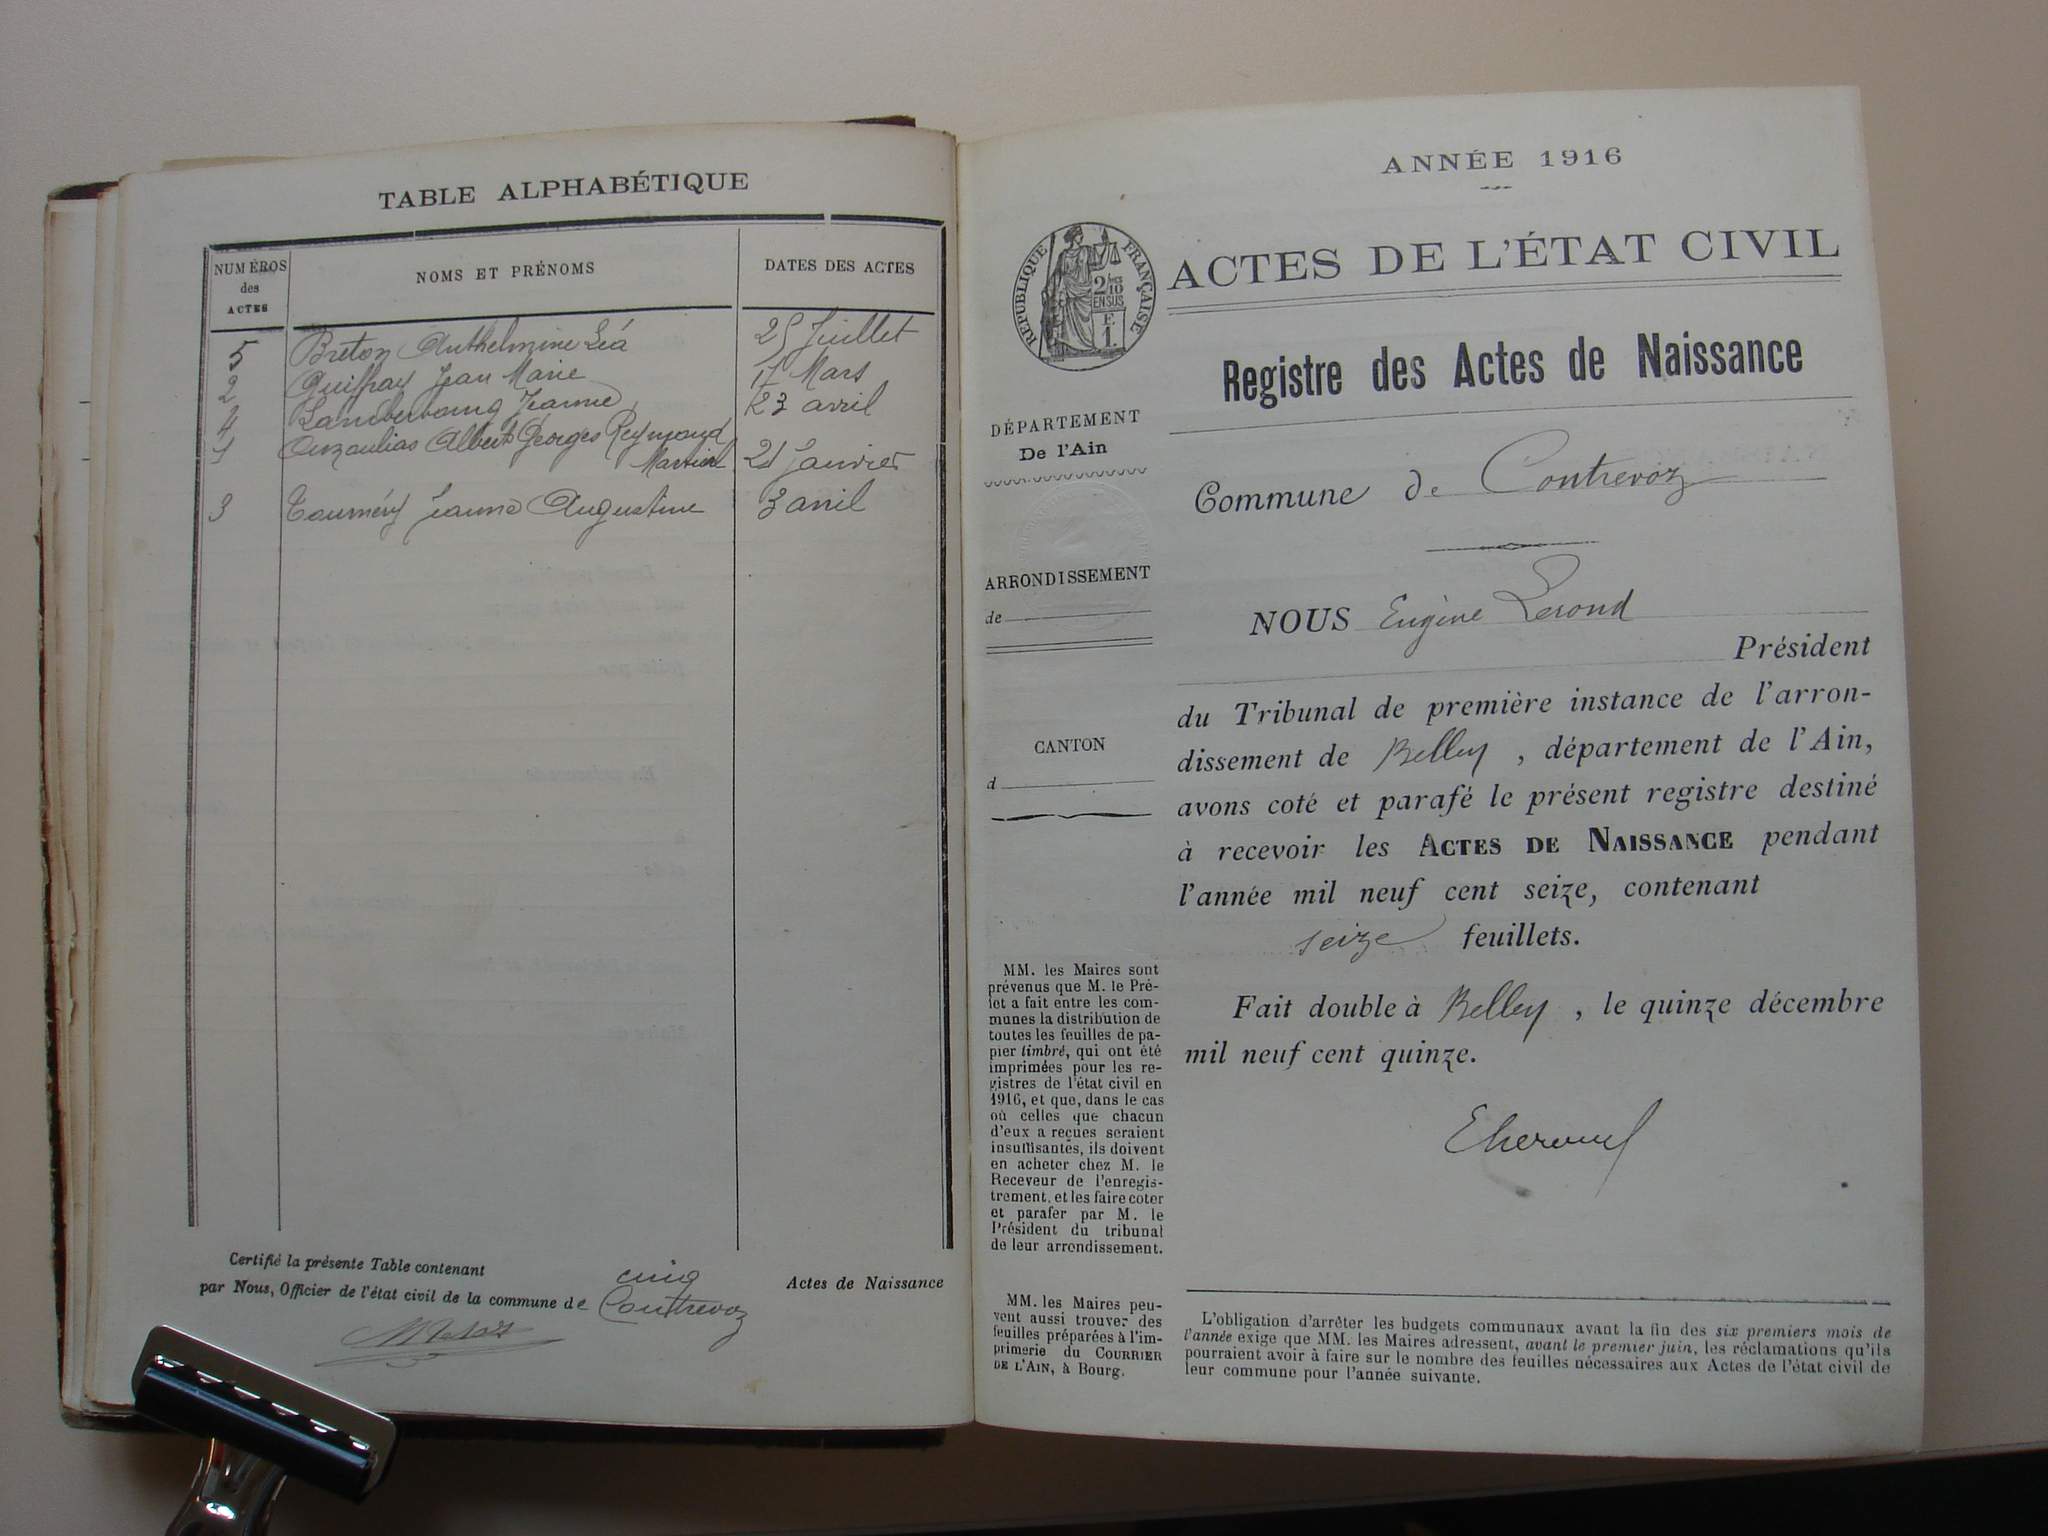 TABLE ALPHABÉTIQUE
NUMÉROS
des
ACTES
NOMS ET PRÉNOMS
DATES DES ACTES
5 Breton Anthelmine Léa 25 Juillet
2 Quiffray Jean Marie 17 Mars
4 Jeanne 23 avril
1 Ouzoulias Albert Georges Reymond
Martial 21 Janvier
3 Tournéry Jeanne Augustine 3 avril
Certifié la présente Table contenant cinq Actes de Naissance
par Nous, Officier de l'état civil de la commune de Contrevoz
ANNÉE 1916
RÉPUBLIQUE FRANÇAISE
2/10
EN SUS
F.
1.
ACTES DE L'ÉTAT CIVIL
Registre des Actes de Naissance
DÉPARTEMENT
De l'Ain
ARRONDISSEMENT
de
CANTON
d
Commune de Contrevoz
NOUS Eugène
Président
du Tribunal de première instance de l'arron-
dissement de Belley, département de l'Ain,
avons coté et parafé le présent registre destiné
à recevoir les ACTES DE NAISSANCE pendant
l'année mil neuf cent seize, contenant
seize feuillets.
Fait double à Belley, le quinze décembre
mil neuf cent quinze.
MM. les Maires sont
prévenus que M. le Pré-
fet a fait entre les com-
munes la distribution de
toutes les feuilles de pa-
pier timbré, qui ont été
imprimées pour les re-
gistres de l'état civil en
1916, et que, dans le cas
où celles que chacun
d'eux a reçues seraient
insuffisantes, ils doivent
en acheter chez M. le
Receveur de l'enregis-
trement, et les faire coter
et parafer par M. le
Président du tribunal
de leur arrondissement.
MM. les Maires peu-
vent aussi trouver des
feuilles préparées à l'im-
primerie du COURRIER
DE L'AIN, à Bourg.
L'obligation d'arrêter les budgets communaux avant la fin des six premiers mois de
l'année exige que MM. les Maires adressent, avant le premier juin, les réclamations qu'ils
pourraient avoir à faire sur le nombre des feuilles nécessaires aux Actes de l'état civil de
leur commune pour l'année suivante.